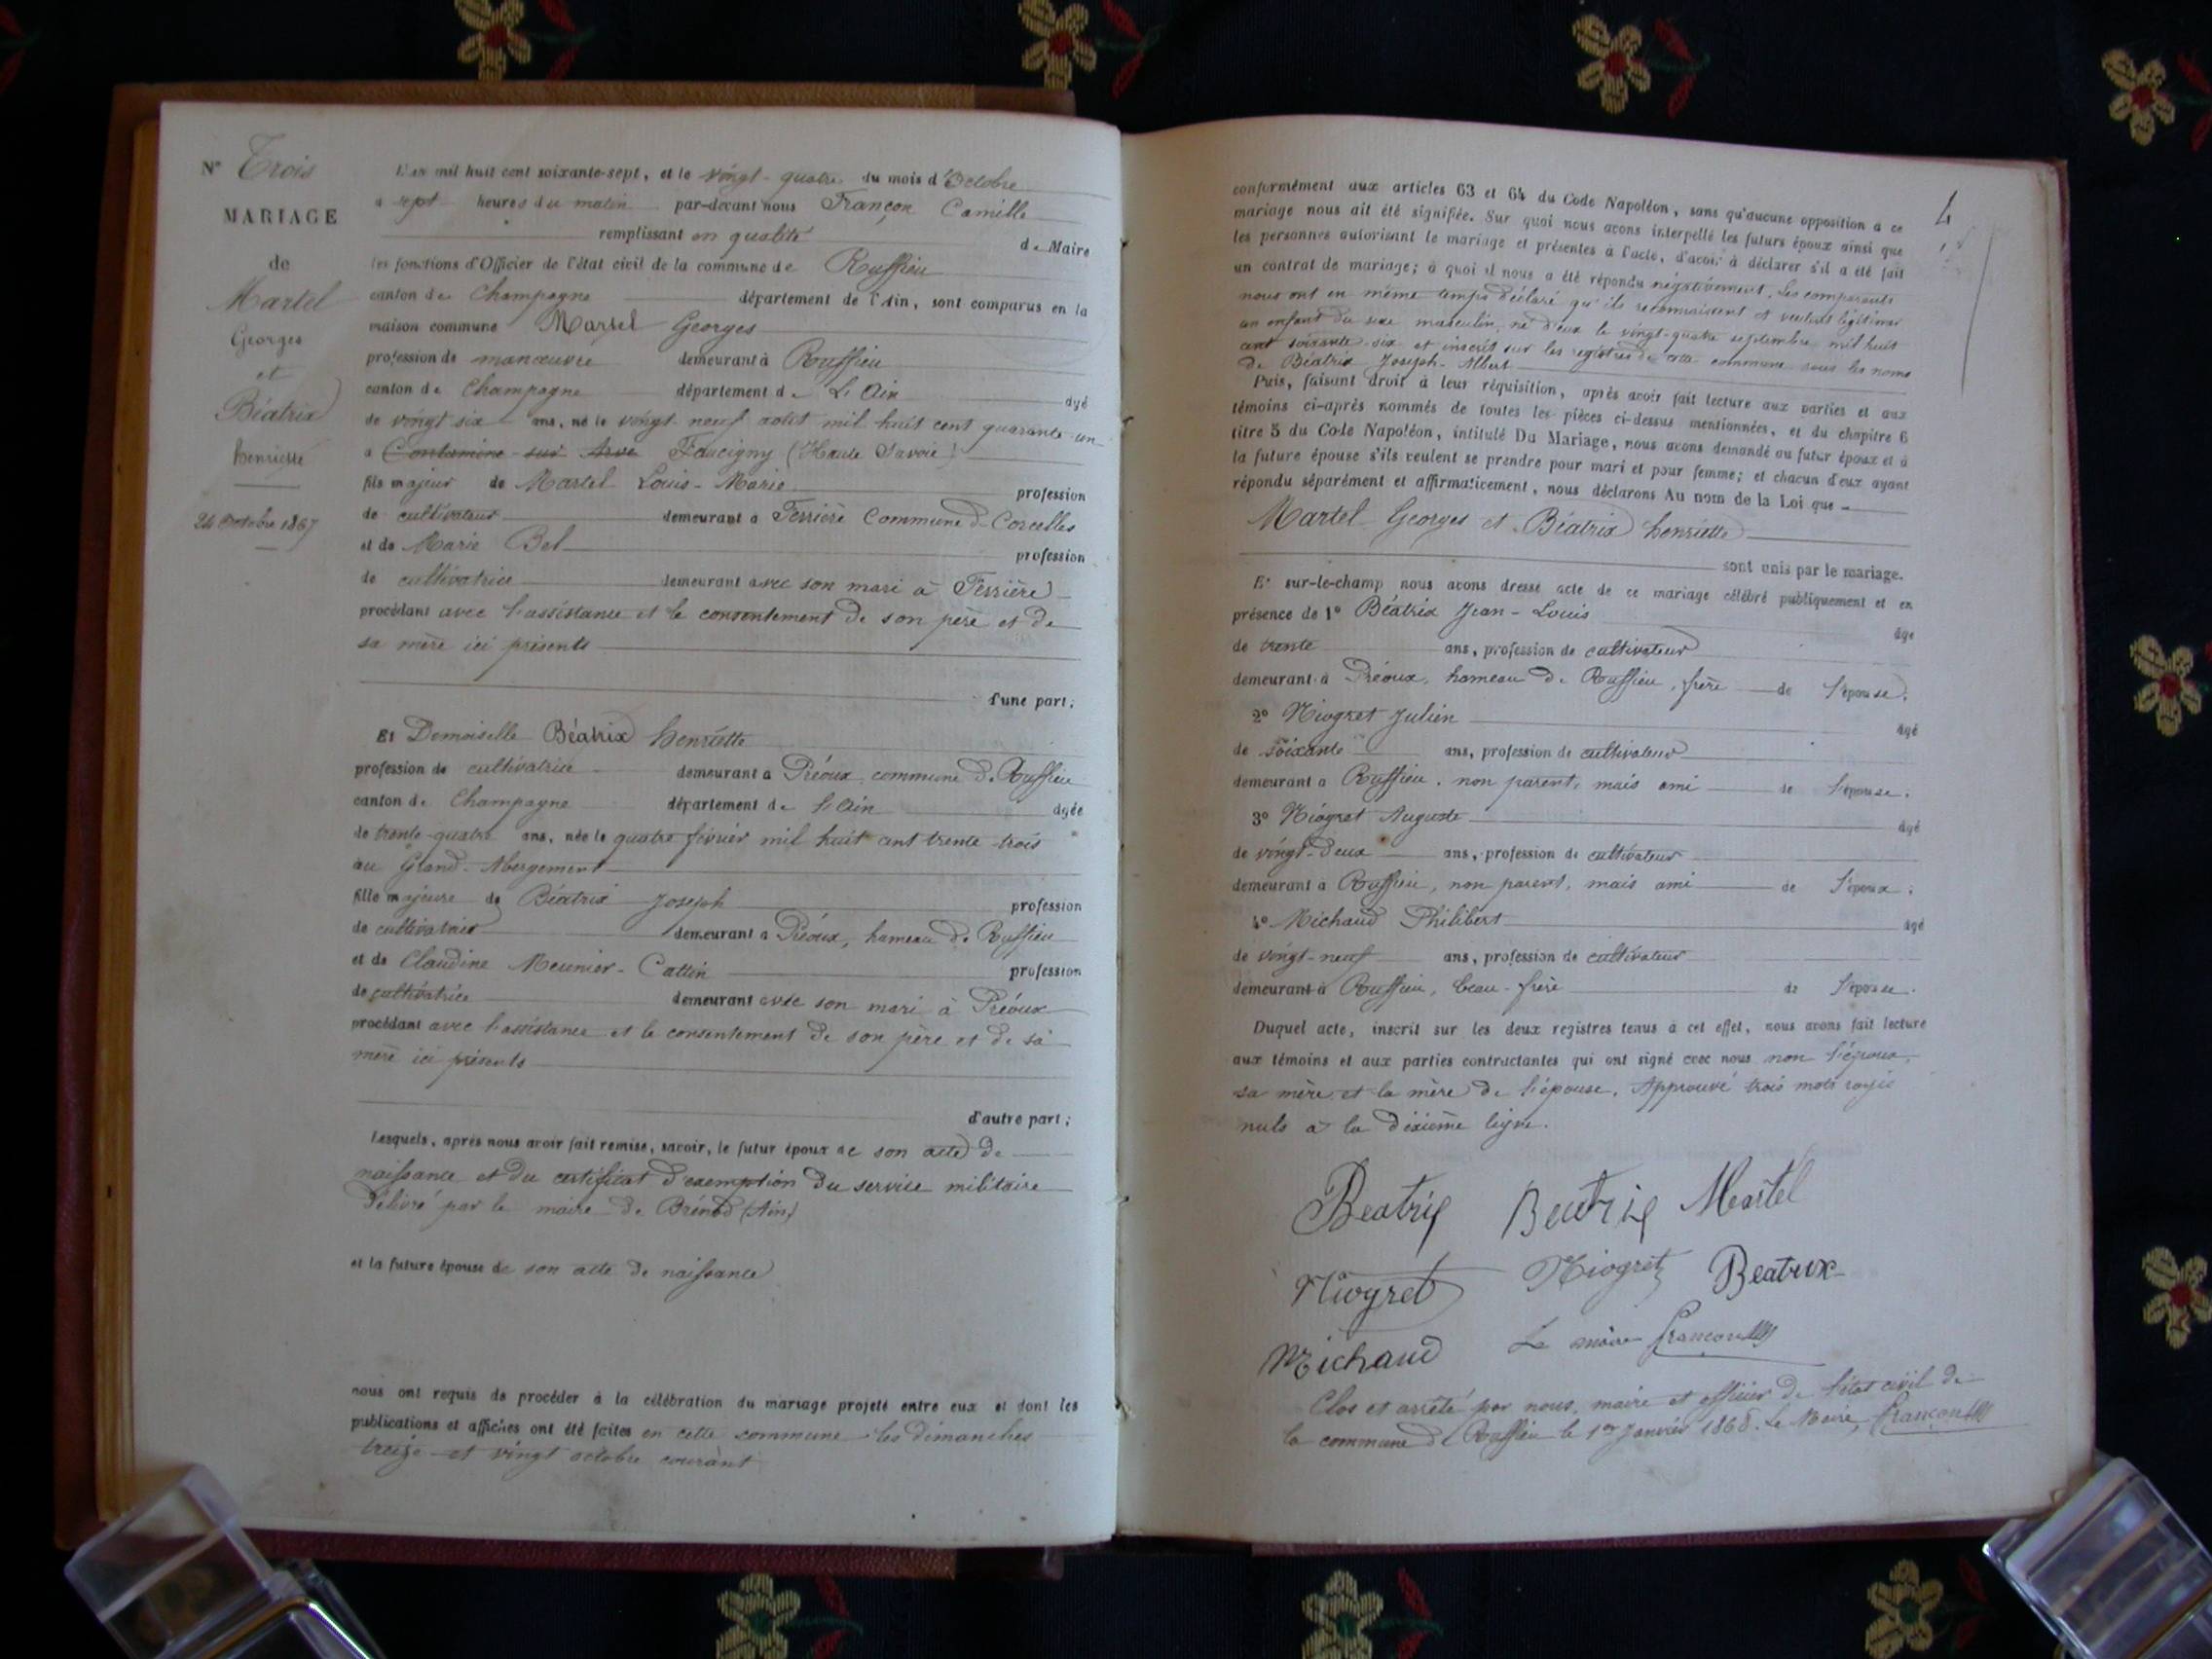 N° Trois
MARIAGE
de
Martel
Georges
et
Béatrix
henriette
24 Octobre 1867
L'an mil huit cent soixante-sept, et le vingt-quatre du mois d'Octobre
à sept heures du matin par-devant nous Françon Camille
remplissant en qualité de Maire
les fonctions d'Officier de l'état civil de la commune de Ruffieu
canton de Champagne département de l'Ain, sont comparus en la
maison commune Martel Georges
profession de manœuvre demeurant à Ruffieu
canton de Champagne département de L'Ain âgé
de vingt six ans, né le vingt-neuf août mil huit cent quarante-un
à Contamine-sur-Arve Faucigny (Haute Savoie)
fils majeur de Martel Louis-Marie profession
de cultivateur demeurant à Ferrière Commune de Corcelles
et de Marie Bel profession
de cultivatrice demeurant avec son mari à Ferrière
procédant avec l'assistance et le consentement de son père et de
sa mère ici présents
d'une part;
Et Demoiselle Béatrix henriette
profession de cultivatrice demeurant à Préoux commune de Ruffieu
canton de Champagne département de l'Ain âgée
de trente-quatre ans, née le quatre février mil huit cent trente-trois
au Grand-Abergement
fille majeure de Béatrix Joseph profession
de cultivateur demeurant à Préoux, hameau de Ruffieu
et de Claudine Meunier-Cattin profession
de cultivatrice demeurant avec son mari à Préoux
procédant avec l'assistance et le consentement de son père et de sa
mère ici présents
d'autre part;
Lesquels, après nous avoir fait remise, savoir, le futur époux de son acte de
naissance et du certificat d'exemption du service militaire
délivré par le maire de Brénod (Ain)
et la future épouse de son acte de naissance
nous ont requis de procéder à la célébration du mariage projeté entre eux et dont les
publications et affiches ont été faites en cette commune les dimanches
treize et vingt octobre courant
4
conformément aux articles 63 et 64 du Code Napoléon, sans qu'aucune opposition à ce
mariage nous ait été signifiée. Sur quoi nous avons interpellé les futurs époux ainsi que
les personnes autorisant le mariage et présentes à l'acte, d'avoir à déclarer s'il a été fait
un contrat de mariage; à quoi il nous a été répondu négativement. Les comparants
nous ont en même temps déclaré qu'ils reconnaissent et veulent légitimer
un enfant du sexe masculin, né d'eux le vingt-quatre septembre mil huit
cent soixante-six et inscrit sur les registres de cette commune sous les noms
de Béatrix Joseph-Albert
Puis, faisant droit à leur réquisition, après avoir fait lecture aux parties et aux
témoins ci-après nommés de toutes les pièces ci-dessus mentionnées, et du chapitre 6
titre 5 du Code Napoléon, intitulé Du Mariage, nous avons demandé au futur époux et à
la future épouse s'ils veulent se prendre pour mari et pour femme; et chacun d'eux ayant
répondu séparément et affirmativement, nous déclarons Au nom de la Loi que
Martel Georges et Béatrix henriette
sont unis par le mariage.
Et sur-le-champ nous avons dressé acte de ce mariage célébré publiquement et en
présence de 1° Béatrix Jean-Louis âgé
de trente ans, profession de cultivateur
demeurant à Préoux, hameau de Ruffieu, frère de l'épouse;
2° Niogret Julien âgé
de soixante ans, profession de cultivateur
demeurant à Ruffieu, non parent, mais ami de l'épouse;
3° Niogret Auguste âgé
de vingt-deux ans, profession de cultivateur
demeurant à Ruffieu, non parent, mais ami de l'époux;
4° Michaud Philibert âgé
de vingt-neuf ans, profession de cultivateur
demeurant à Ruffieu, beau-frère de l'épouse.
Duquel acte, inscrit sur les deux registres tenus à cet effet, nous avons fait lecture
aux témoins et aux parties contractantes qui ont signé avec nous non l'époux,
sa mère et la mère de l'épouse. Approuvé trois mots rayés
nuls à la dixième ligne.
Beatrix Beatrix Martel
Niogret Niogret Beatrix
Michaud Le maire Françon
Clos et arrêté par nous, maire et officier de l'état civil de
la commune de Ruffieu le 1er Janvier 1868. Le Maire, Françon